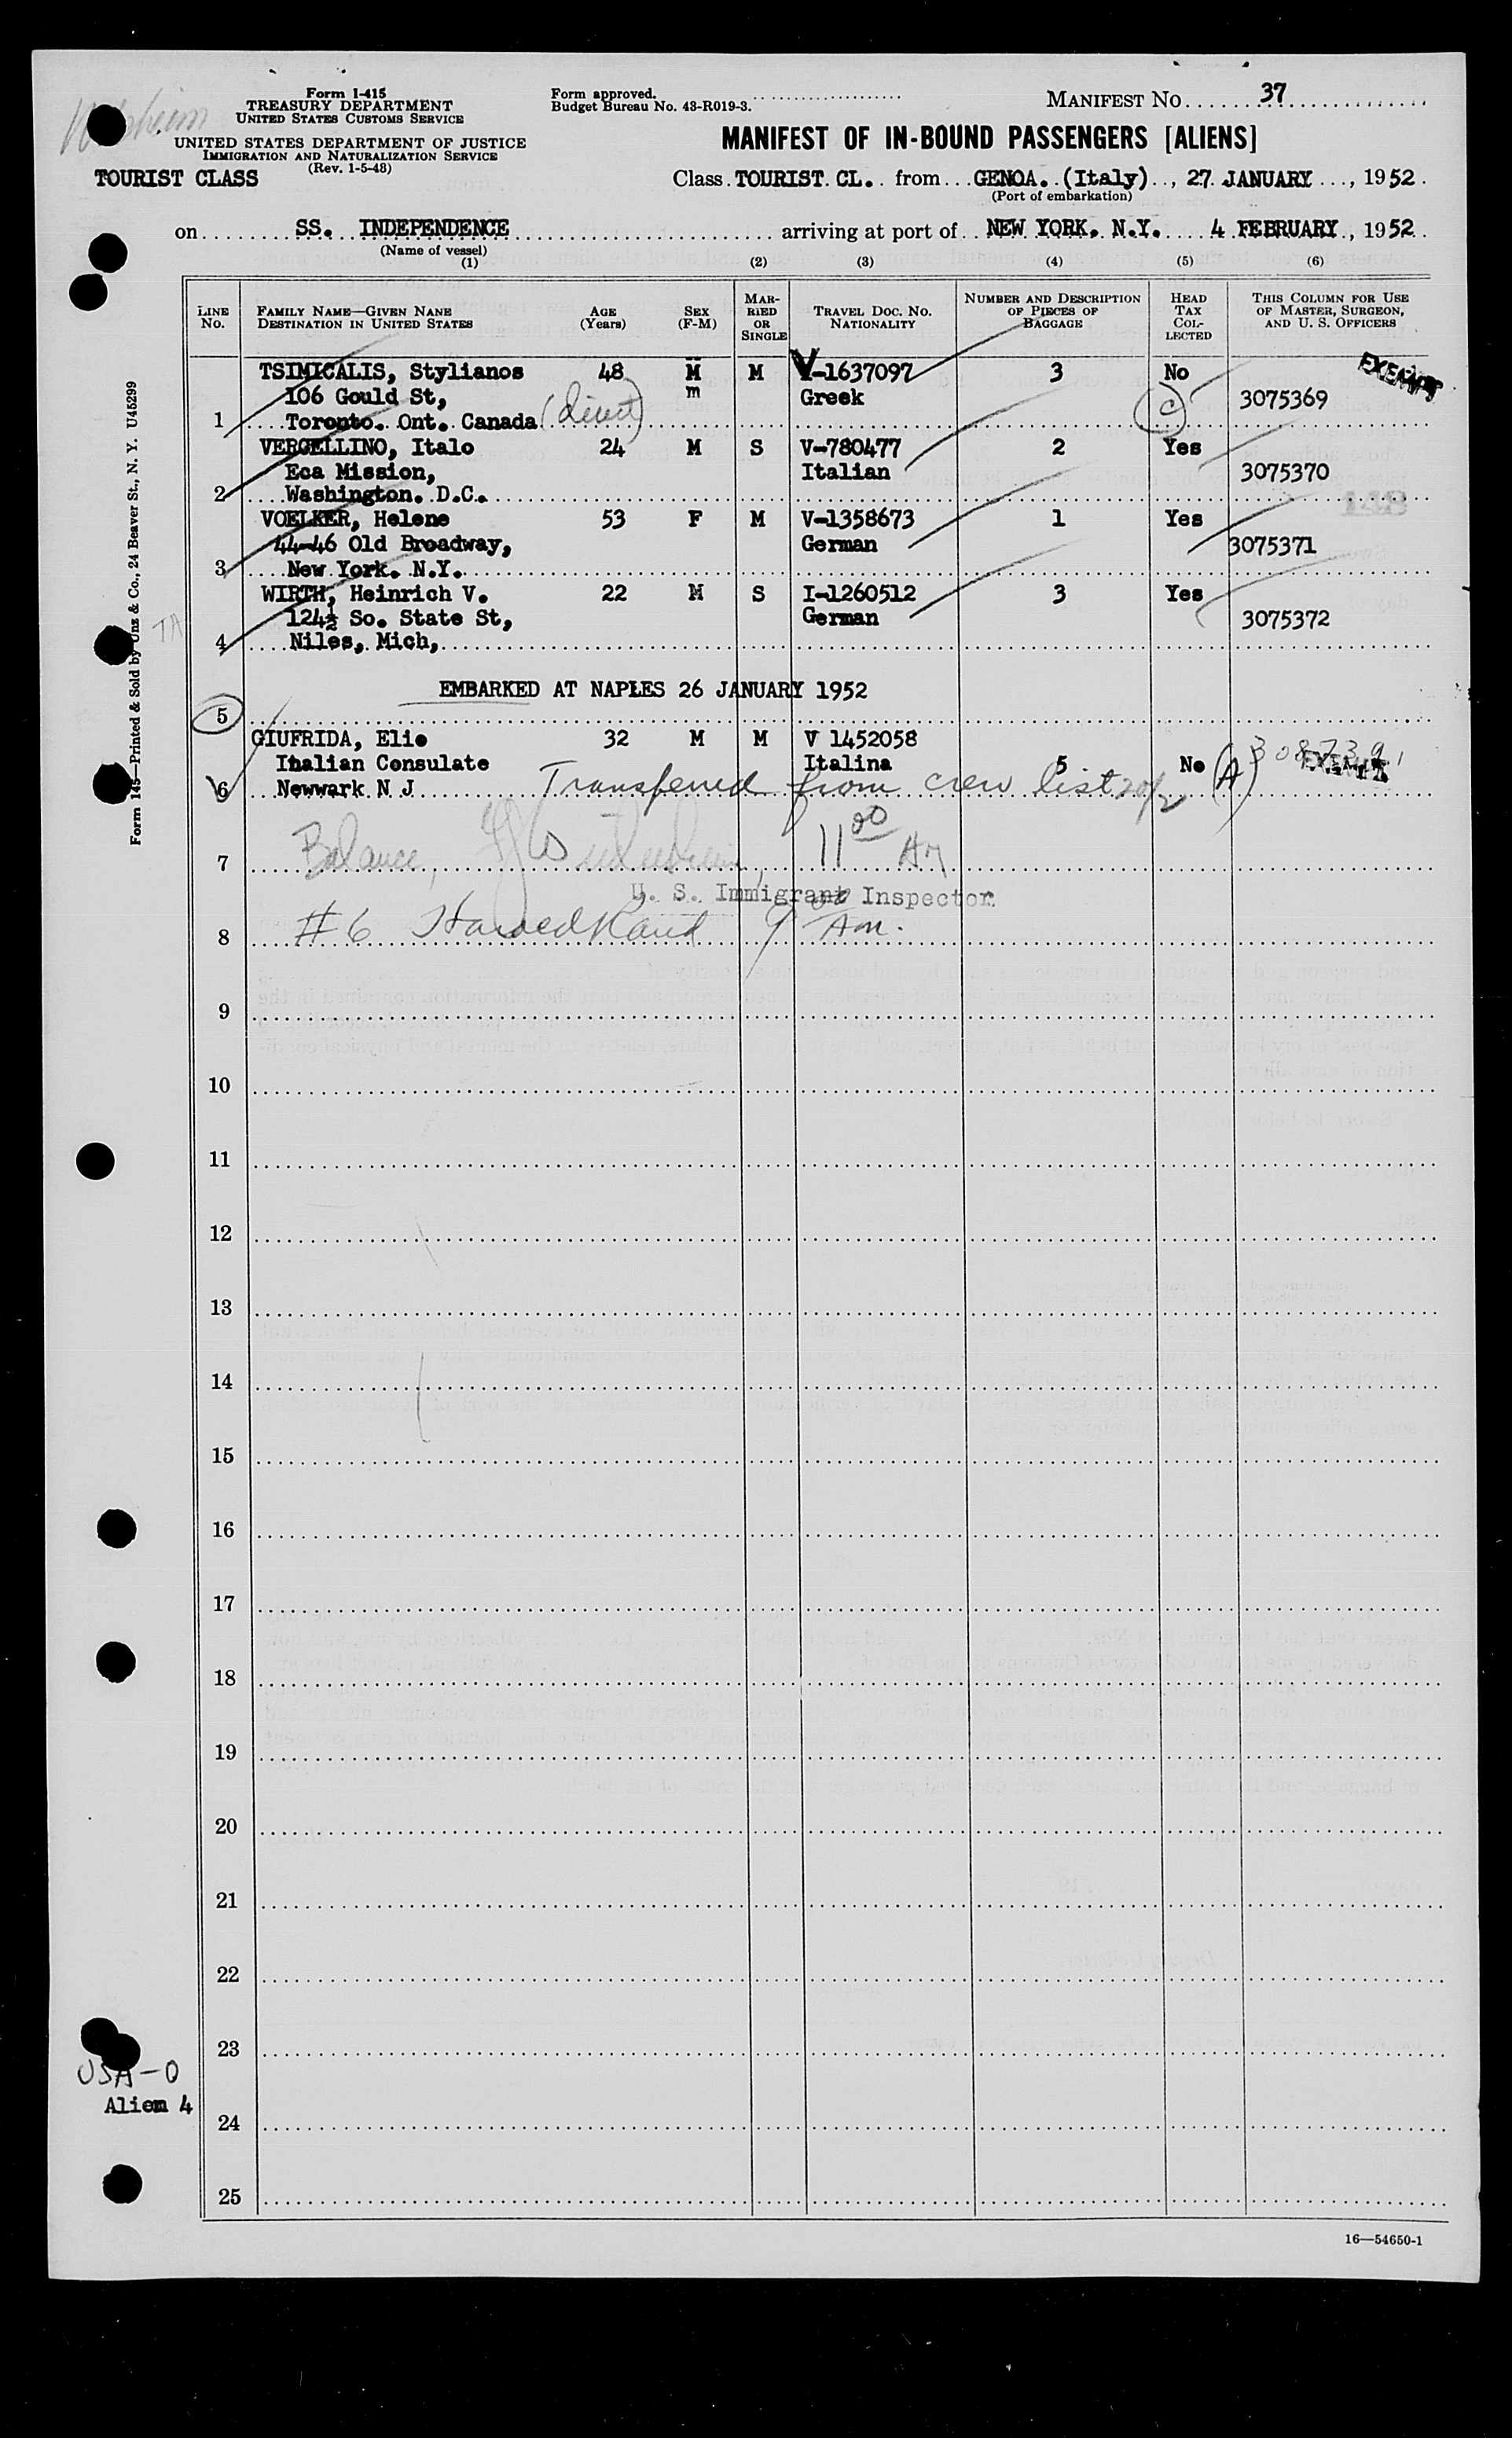 Form 1-415
TREASURY DEPARTMENT
UNITED STATES CUSTOMS SERVICE
UNITED STATES DEPARTMENT OF JUSTICE
IMMIGRATION AND NATURALIZATION SERVICE
(Rev. 1-5-48)
Form approved.
Budget Bureau No. 43-R019-3.
MANIFEST NO. 37
MANIFEST OF IN-BOUND PASSENGERS [ALIENS]
TOURIST CLASS
Class TOURIST. CL. from GENOA. (Italy), 27 JANUARY, 1952.
(Port of embarkation)
on SS. INDEPENDENCE arriving at port of NEW YORK. N.Y. 4 FEBRUARY, 1952.
(Name of vessel)
(1) (2) (3) (4) (5) (6)
LINE No. FAMILY NAME—GIVEN NANE DESTINATION IN UNITED STATES AGE (Years) SEX (F-M) MARRIED OR SINGLE TRAVEL DOC. NO. NATIONALITY NUMBER AND DESCRIPTION OF PIECES OF BAGGAGE HEAD TAX COLLECTED THIS COLUMN FOR USE OF MASTER, SURGEON, AND U. S. OFFICERS
TSIMICALIS, Stylianos 48 M M V-1637097 3 No EXEMPT
106 Gould St, m Greek (C) 3075369
1 Toronto. Ont. Canada (direct)
VERCELLINO, Italo 24 M S V-780477 2 Yes
Eca Mission, Italian 3075370
2 Washington. D.C. 148
VOELKER, Helene 53 F M V-1358673 1 Yes
44-46 Old Broadway, German 3075371
3 New York. N.Y.
WIRTH, Heinrich V. 22 M S I-1260512 3 Yes
124½ So. State St, German 3075372
4 Niles, Mich,
EMBARKED AT NAPLES 26 JANUARY 1952
5
GIUFRIDA, Elio 32 M M V 1452058
Italian Consulate Italina 5 No (A) 3087391 EXEMPT
6 Newwark N J Transferred from crew list 20/2
7 Balance, 11 00 AM
U. S. Immigrant Inspector
8 #6 9 00 Am.
9
10
11
12
13
14
15
16
17
18
19
20
21
22
23
24
25
USA-0
Alien 4
TA
Form 145—Printed & Sold by Unz & Co., 24 Beaver St., N. Y. U45299
16—54650-1